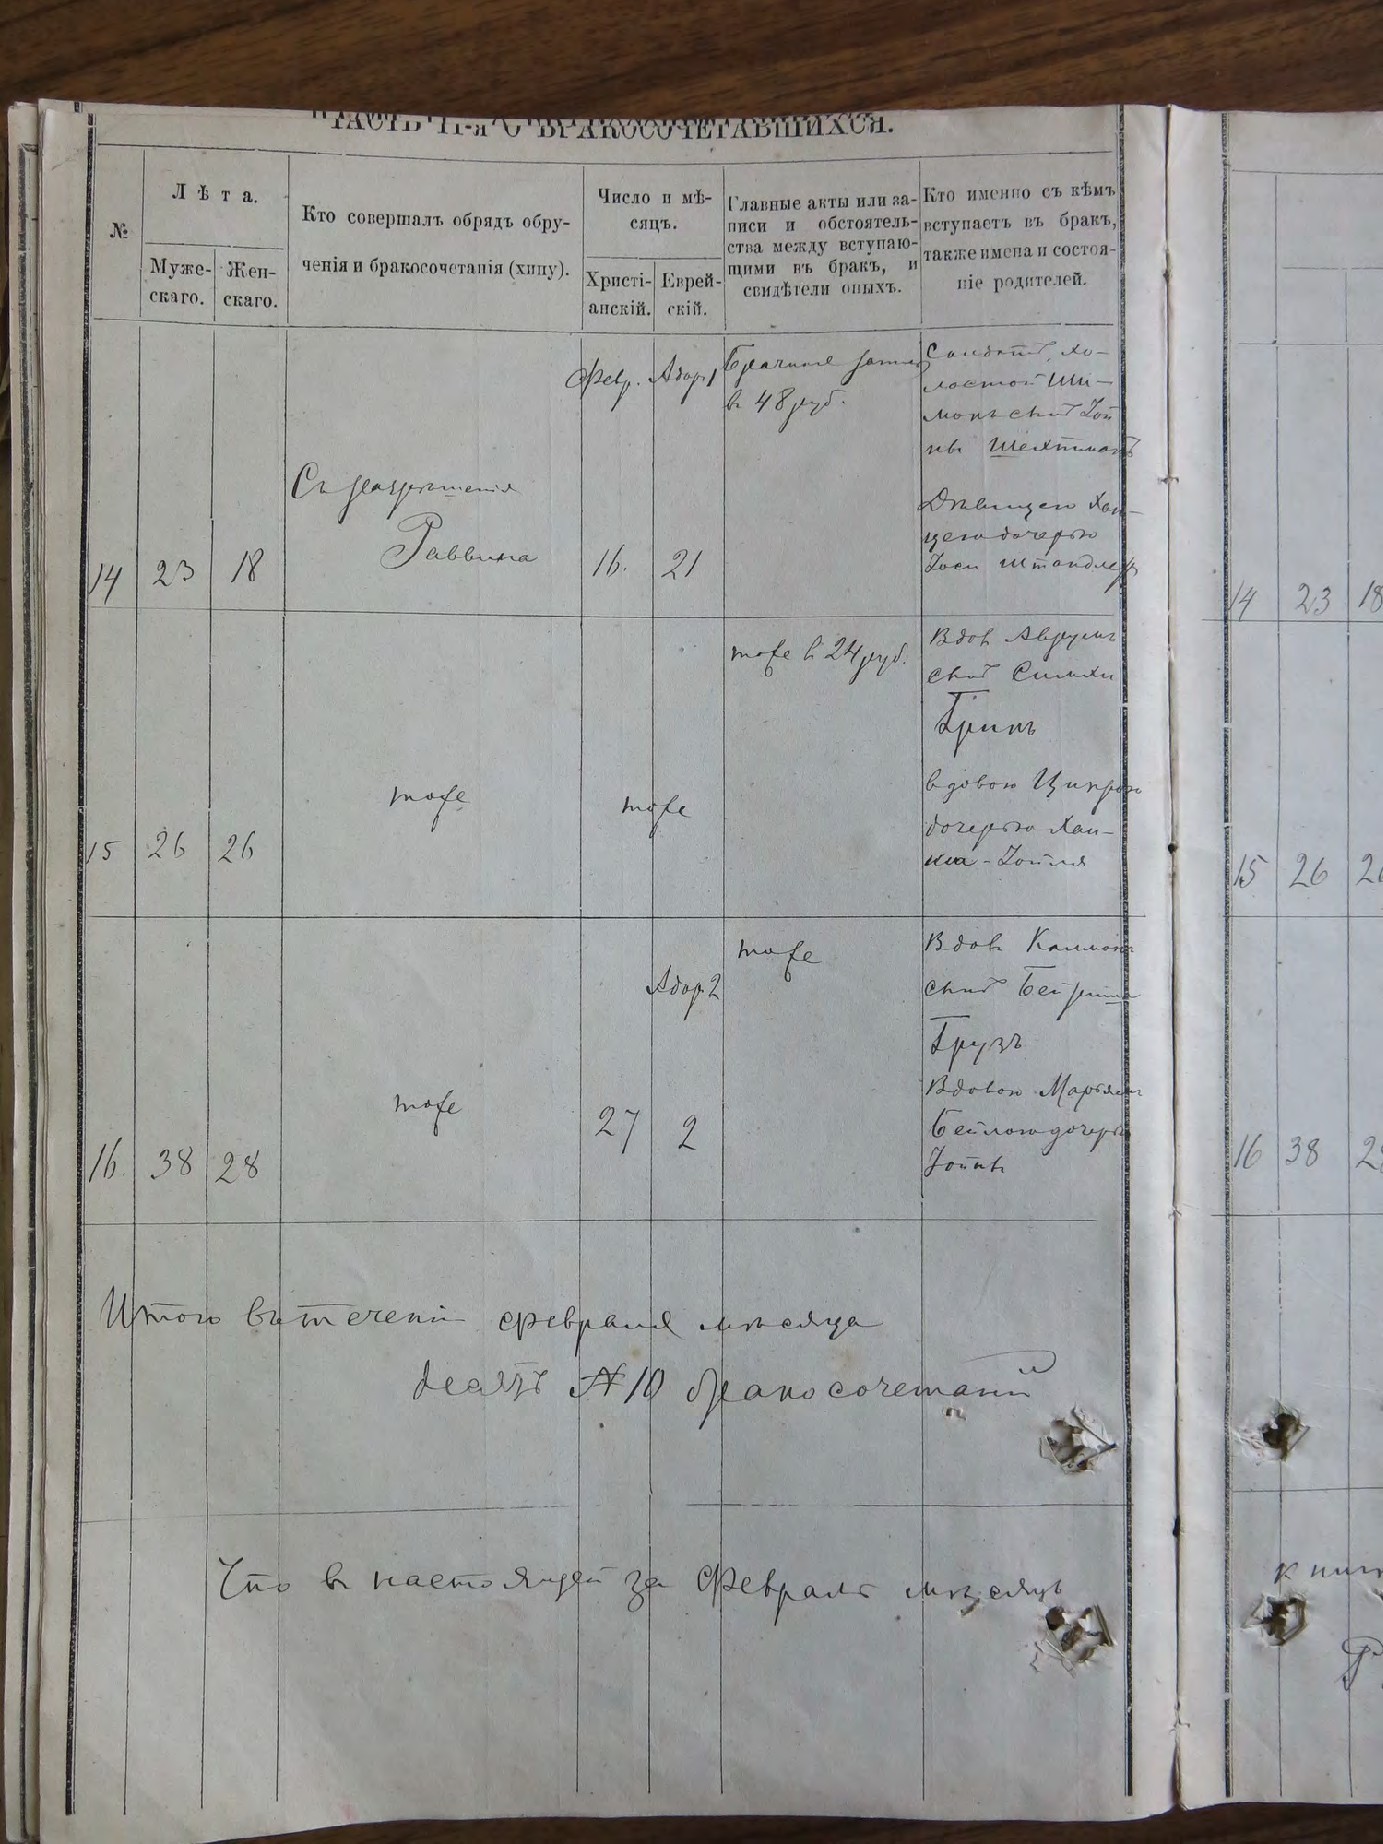 ЧАСТЬ II-я О БРАКОСОЧЕТАВШИХСЯ.
№
Лѣта.
Муже-
скаго.
Жен-
скаго.
Кто совершалъ обрядъ обру-
ченія и бракосочетанія (хипу).
Число и мѣ-
сяцъ.
Христі-
анскій.
Еврей-
скій.
Главные акты или за-
писи и обстоятель-
ства между вступаю-
щими въ бракъ, и
свидѣтели оныхъ.
Кто именно съ кѣмъ
вступаетъ въ бракъ,
также имена и состоя-
ніе родителей.
14
23
18
Съ разрѣшенія
Раввина
Февр.
16.
Адаръ 1
21
Брачная запись
в 48 руб.
Солдатъ, хо-
лостой Ши-
монъ сынъ Іой
ны Шехтманъ
Дѣвицею Хай-
цею дочерью
Іоси Штандлеръ
15
26
26
тоже
тоже
тоже в 24 руб.
Вдов Аврумъ
сынъ Симхи
Гринъ
вдовою Ципрою
дочерью Хаи-
ма-Іойля
16
38
28
тоже
27
Адар 2
2
тоже
Вдовъ Калман
сынъ Бейриша
Грузъ
Вдовою Марьям
Бейлою дочерью
Іойны
Итого въ теченіи февраля мѣсяца
десять № 10 бракосочетаній
Что в настоящей за Февраль мѣсяцъ
14
23
18
15
26
16
38